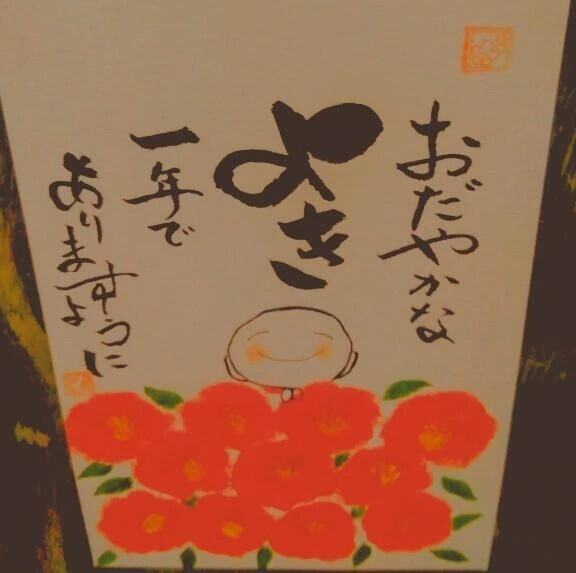 おだやかな
よき
一年で
ありますように